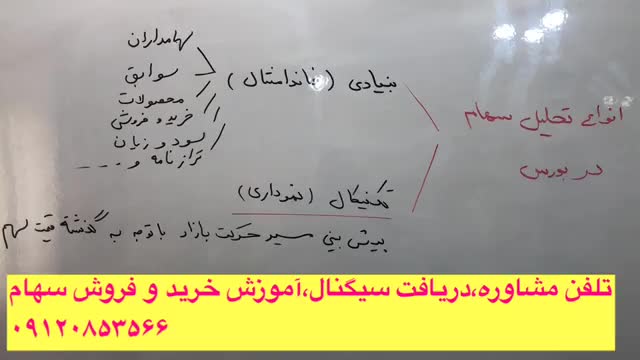 انواع تحلیل سهام
در بورس
بنیادی (فاندامنتال)
سهامداران
سوابق
محصولات
خرید و فروش
سود و زیان
ترازنامه و ....
تکنیکال (نموداری)
پیش بینی سیر حرکت بازار با توجه به گذشته قیت سهم
تلفن مشاوره،دریافت سیگنال،آموزش خرید و فروش سهام
۰۹۱۲۰۸۵۳۵۶۶